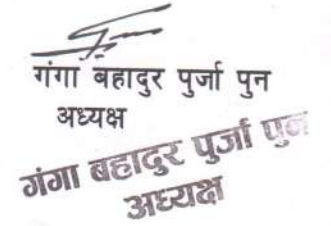 गंगा बहादुर पुर्जा पुन
अध्यक्ष
गंगा बहादुर पुर्जा पुन
अध्यक्ष